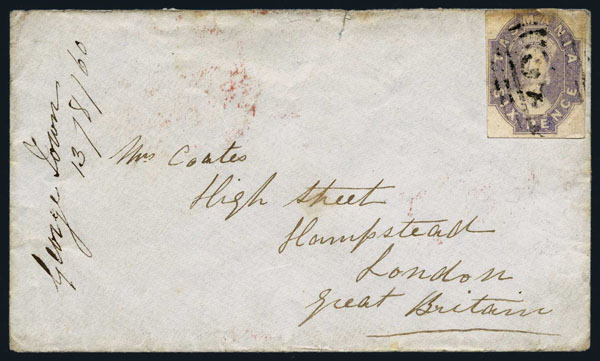 George Town
13/8/60
TASMANIA
SIX PENCE
Mrs Coates
High Street
Hampstead
London
Great Britain